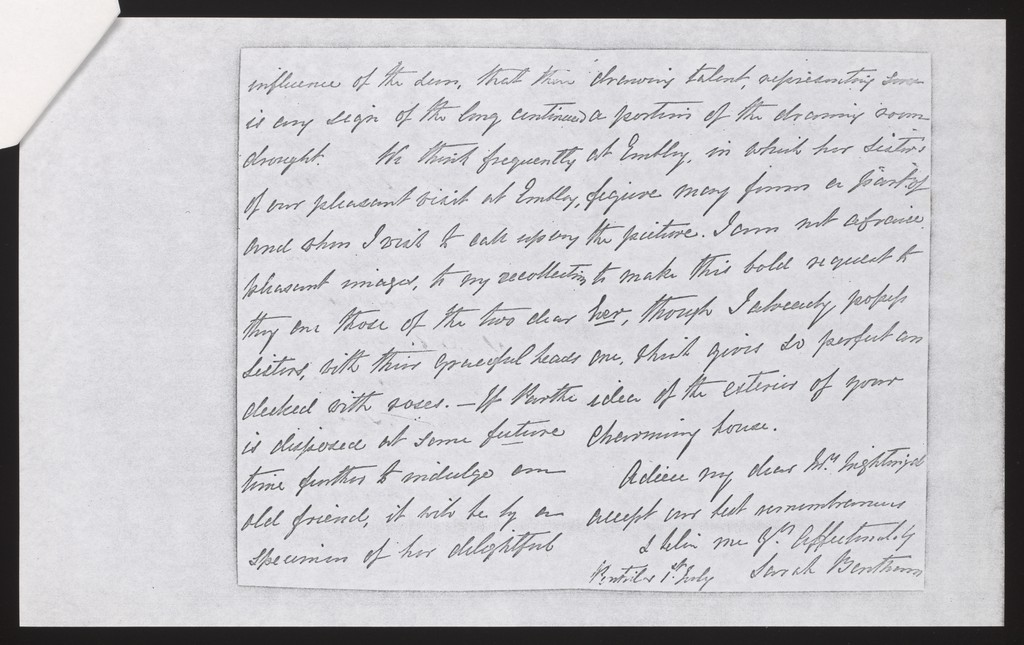 influence of the sun, that there
is any sign of the long continued
drought. We think frequently
of our pleasant visit at Embley,
and when I wish to call up any
pleasant images, to my recollection
they are those of the two dear
sisters, with their graceful heads
decked with roses. — If Parthe
is disposed at some future
time further to indulge an
old friend, it will be by a
specimen of her delightful
drawing talent, representing some
a portion of the drawing room
at Embley, in which her sisters
figure may form a part of
the picture. I am not afraid
to make this bold request to
her, though I already possess
one, which gives so perfect an
idea of the exterior of your
charming house.
Adieu my dear Mrs Nightingale
accept our best remembrances
& believe me Yrs Affectionately
1st July Sarah Bentham